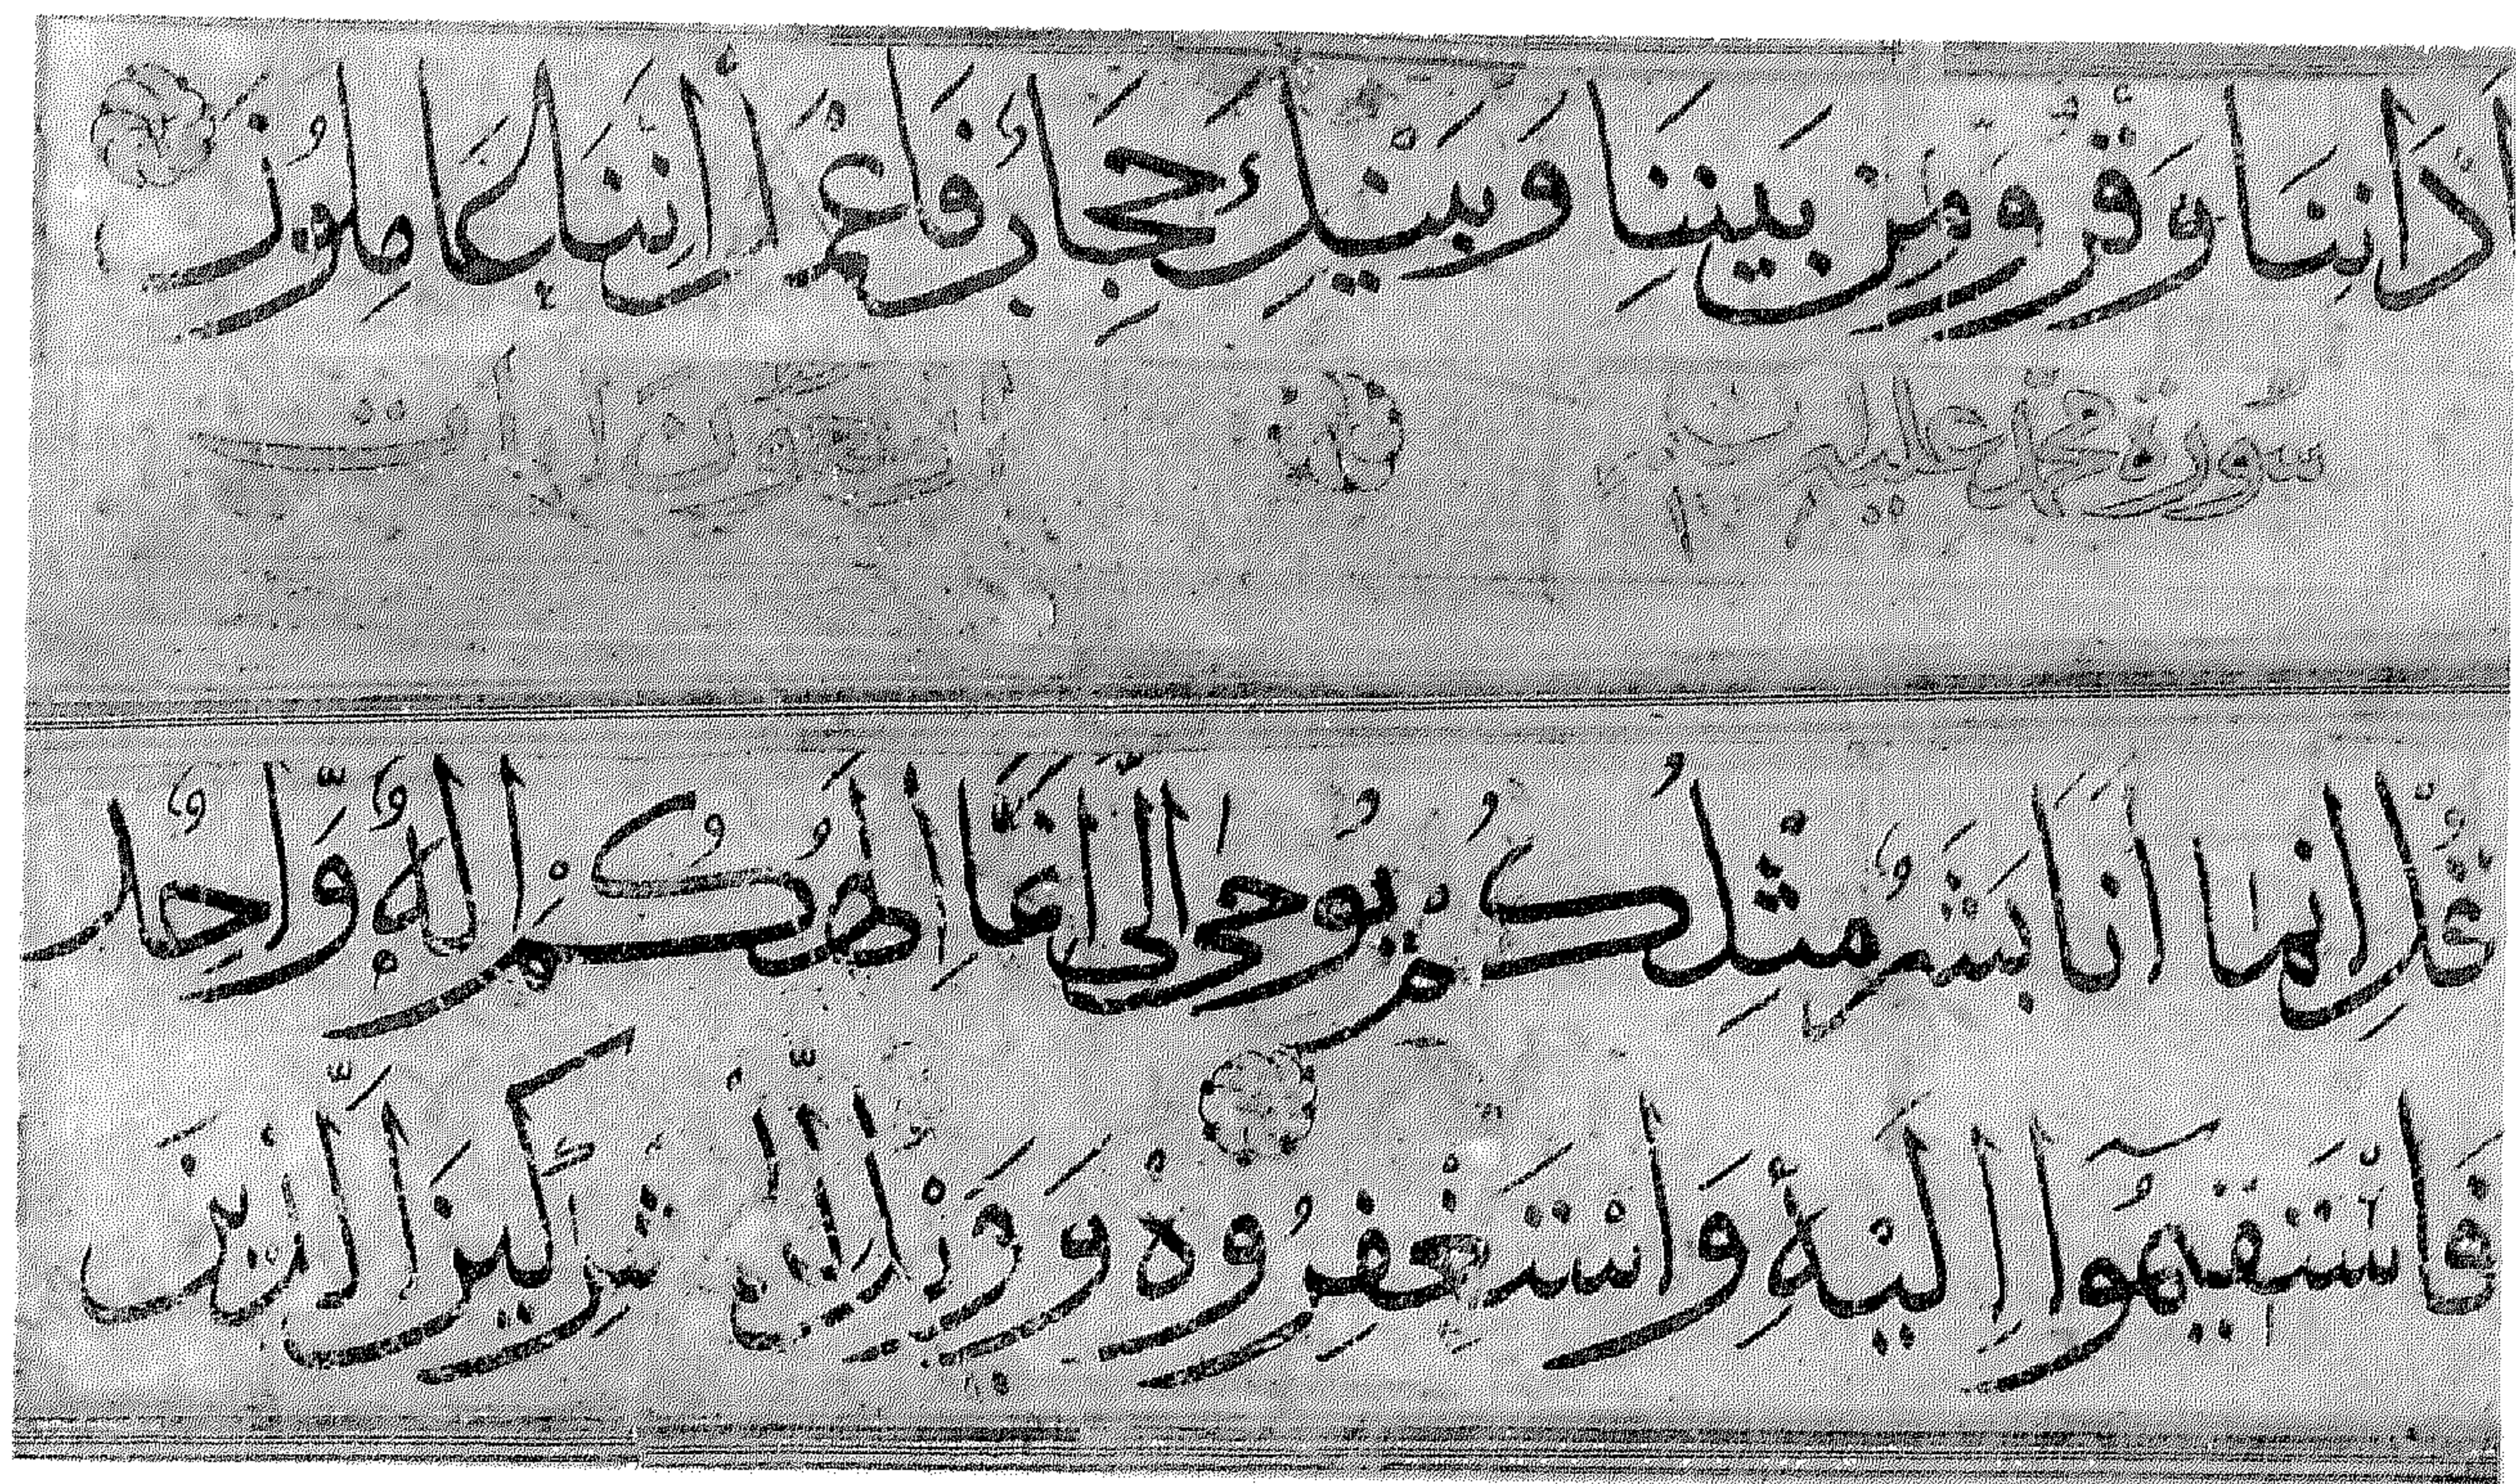 اذَانِنَا وَقْرٌ وَمِنْ بَيْنِنَا وَبَيْنِكَ حِجَابٌ فَاعْمَلْ اِنَّنَا عَامِلُونَ
سورة محمد عليه
قُلْ اِنَّمَا اَنَا بَشَرٌ مِثْلُكُمْ يُوحٰى اِلَىَّ اَنَّمَا اِلٰهُكُمْ اِلٰهٌ وَّاحِدٌ
فَاسْتَقِيمُوا اِلَيْهِ وَاسْتَغْفِرُوهُ وَوَيْلٌ لِلْمُشْرِكِينَ الَّذِينَ